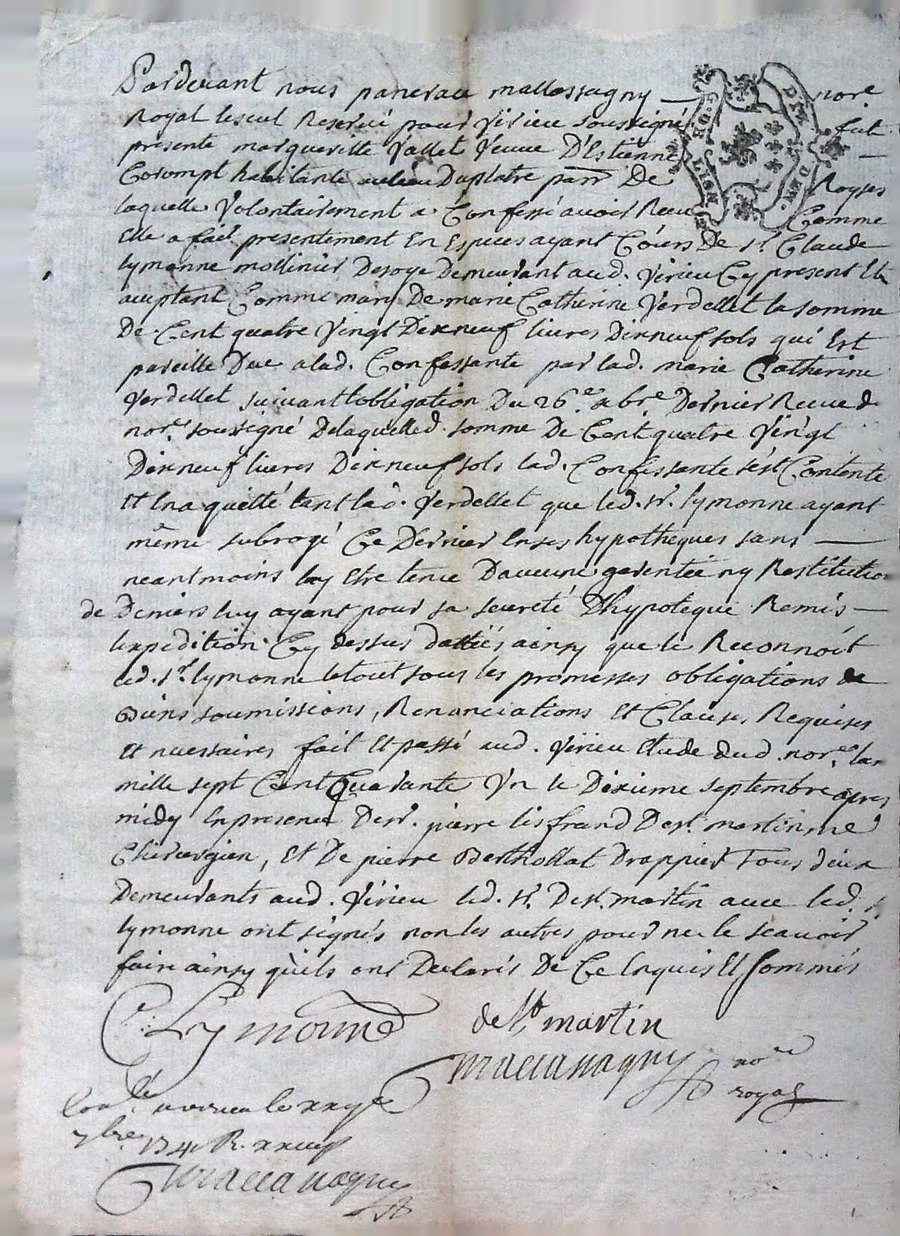 Pardevant nous pancrace mallossagny nore.
Royal le seul Reservé pour Virieu soussigné fut
presente margueritte Vallet Veuve D'Estienne
Corompt habitante au lieu Duplatre parr. De Royses
laquelle Volontairement a Confessé avoir Receu Comme
Elle a fait presentement En Especes ayant Cours De sr. Claude
lymonne mollinier Desoye Demeurant aud. Virieu Cy present Et
acceptant Comme mary De marie Catherine Verdellet la somme
De Cent quatre Vingt Dixneuf livres Dixneuf sols qui Est
pareille Due a lad. Confessante par lad. marie Catherine
Verdellet suivant l'obligation Du 26e. xbre Dernier Receue d
nore. soussigné De laquelle d. somme De Cent quatre Vingt
Dixneuf livres Dixneuf sols lad. Confessante s'est Contentée
Et En a quitté tant lad. Verdellet que led. sr. lymonne ayant
même subrogé Ce Dernier En ses hypotheques sans
neantmoins luy Etre tenue D'aucune garentie ny Restitution
de Deniers luy ayant pour sa seureté D'hypoteque Remis
l'expedition Cy dessus dattée ainsy que le Reconnoit
led. sr. lymonne le tout sous les promesses obligations de
Biens soumissions, Renonciations Et Clauses Requises
Et necessaires fait Et passé aud. Virieu Etude dud. nore. l'an
mille sept Cent Quarante Un le Dixieme septembre apres
midy En presence De sr. pierre lisfrand De st. martin me
Chirurgien, Et De pierre Berthollat Drappier Tous deux
Demeurants aud. Virieu led. sr. De st. martin avec led.
lymonne ont signés non les autres pour ne le scavoir
faire ainsy qu'ils ont Declarés De Ce Enquis Et sommés
C. Lymonne de St. martin
nore
royal
7bre 1741 R.